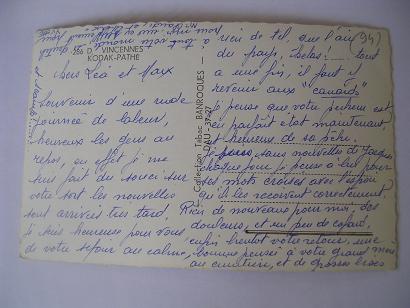 256 D - VINCENNES
KODAK-PATHE
Collection Tabac BANROQUES -
DAU - 27-27
94)
Chers Léa et Max
Souvenir d'une rude
journée de chaleur,
heureux les gens au
repos, en effet je me
suis fait du souci sur
votre sort les nouvelles
sont arrivées très tard.
je suis heureuse pour vous
de votre séjour au calme,
rien de tel, que l'air
du pays, hélas! tout
a une fin, il faut
revenir aux "canards"
je pense que votre pêcheur est
en parfait état maintenant,
et heureux de sa pêche.
je suis sans nouvelles de Jacques
chaque jour je pense à lui pour
ses mots croisés avec l'espoir
qu'il les reçoivent correctement,
Rien de nouveaux pour moi, des
douleurs, et un peu de cafard,
enfin bientôt votre retour, une
bonne pensée à votre grand mère
au cimetière, et de grosses bises